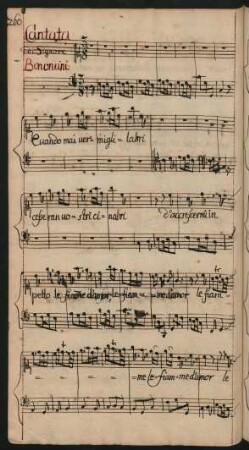 260
Cantata
del Signore
Bononcini
Quando mai vermigli - labri
cesseranno - stri ci - nabri d'accrescermi in
petto le fiamme d'amor, le fiam - - me d'amor le fiam -
- - - - me le fiamme d'amor le